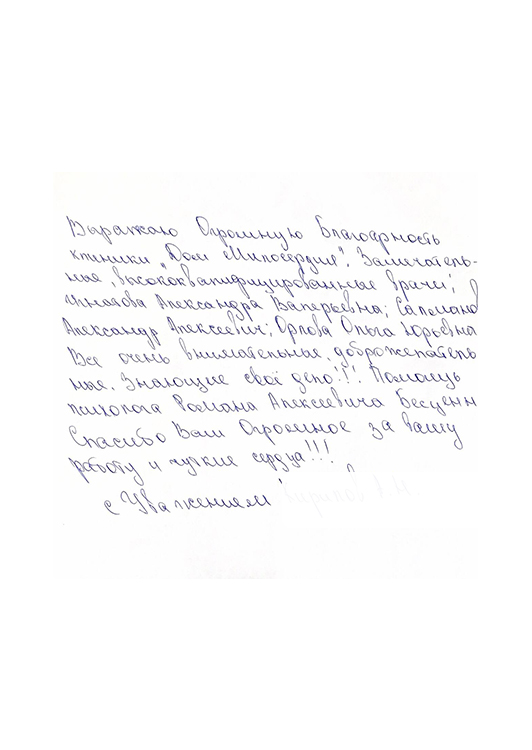 Выражаю Огромную Благодарность
клиники "Дом Милосердия". Замечатель-
ные, высококвалифицированные врачи;
Игнатова Александра Валерьевна;
Александр Алексеевич; Орлова Ольга Юрьевна
Все очень внимательные, доброжелатель
ные. Знающие своё дело!!! Помощь
психолога Романа Алексеевича Бесценн
Спасибо Вам Огромное за вашу
работу и чуткие сердца!!!
с Уважением